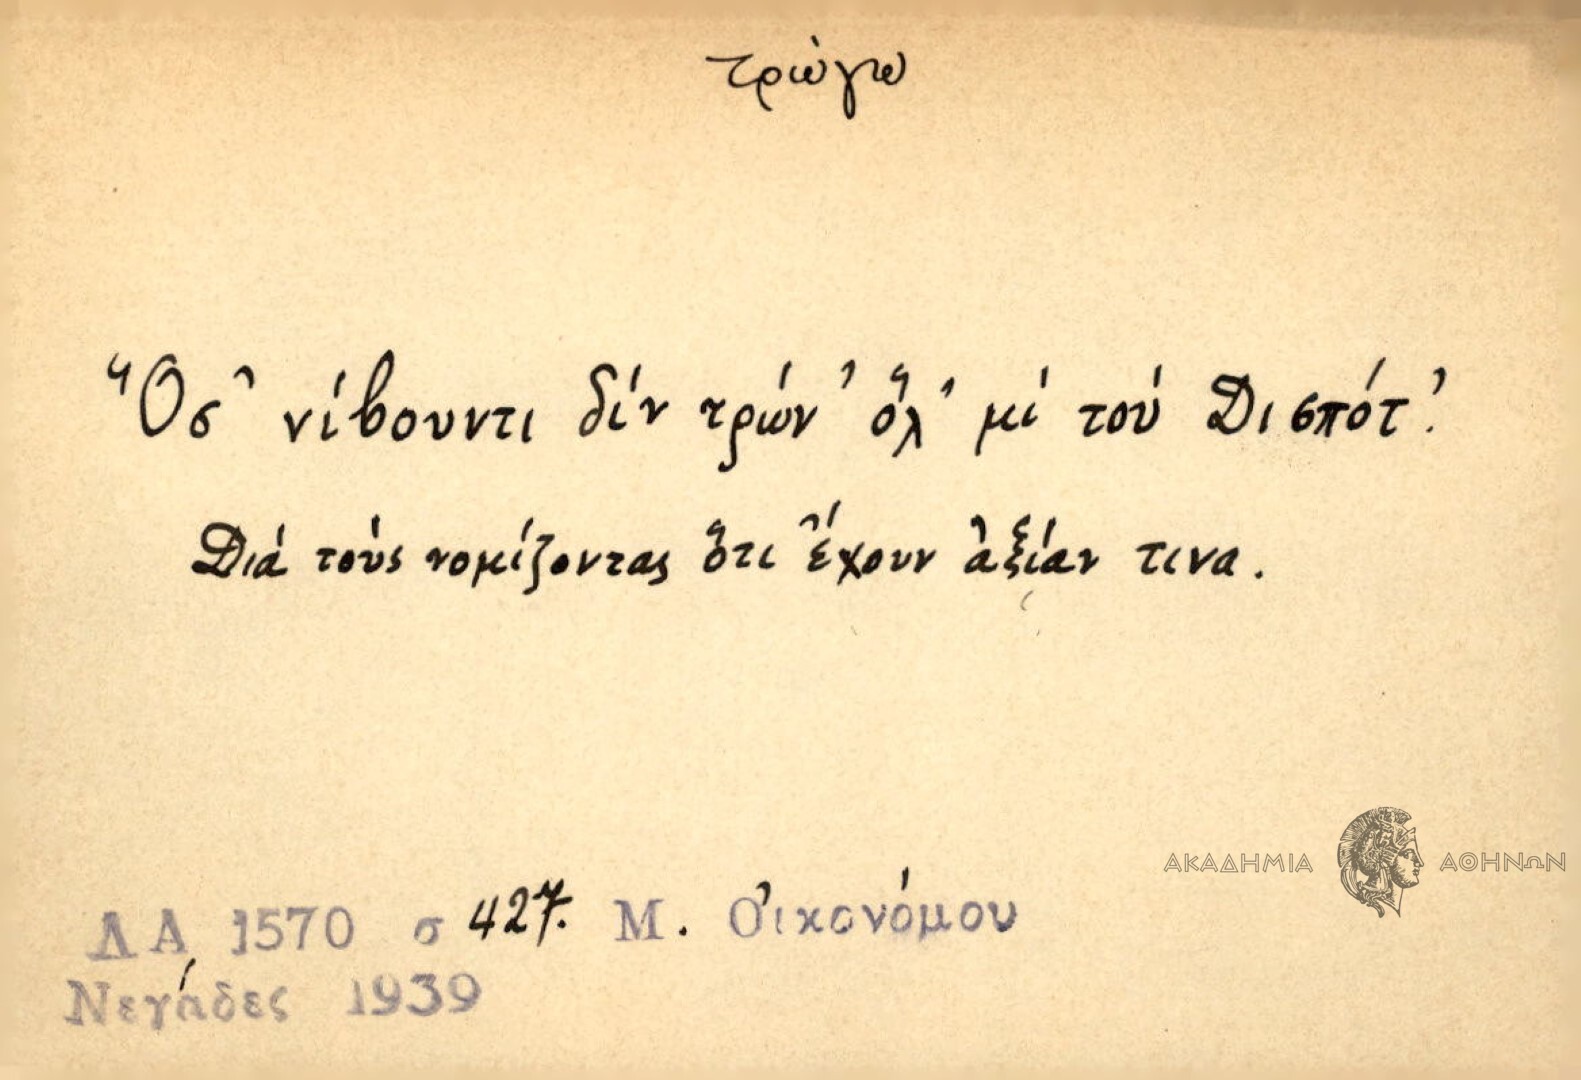 τρώγω
Ὅσ' νίβουντι δίν τρών' ὅλ' μί τού Δισπότ'.
Διά τούς νομίζοντας ὅτι ἔχουν ἀξίαν τινα.
ΑΚΑΔΗΜΙΑ ΑΘΗΝΩΝ
ΛΑ 1570 σ 427. Μ. Οἰκονόμου
Νεγάδες 1939